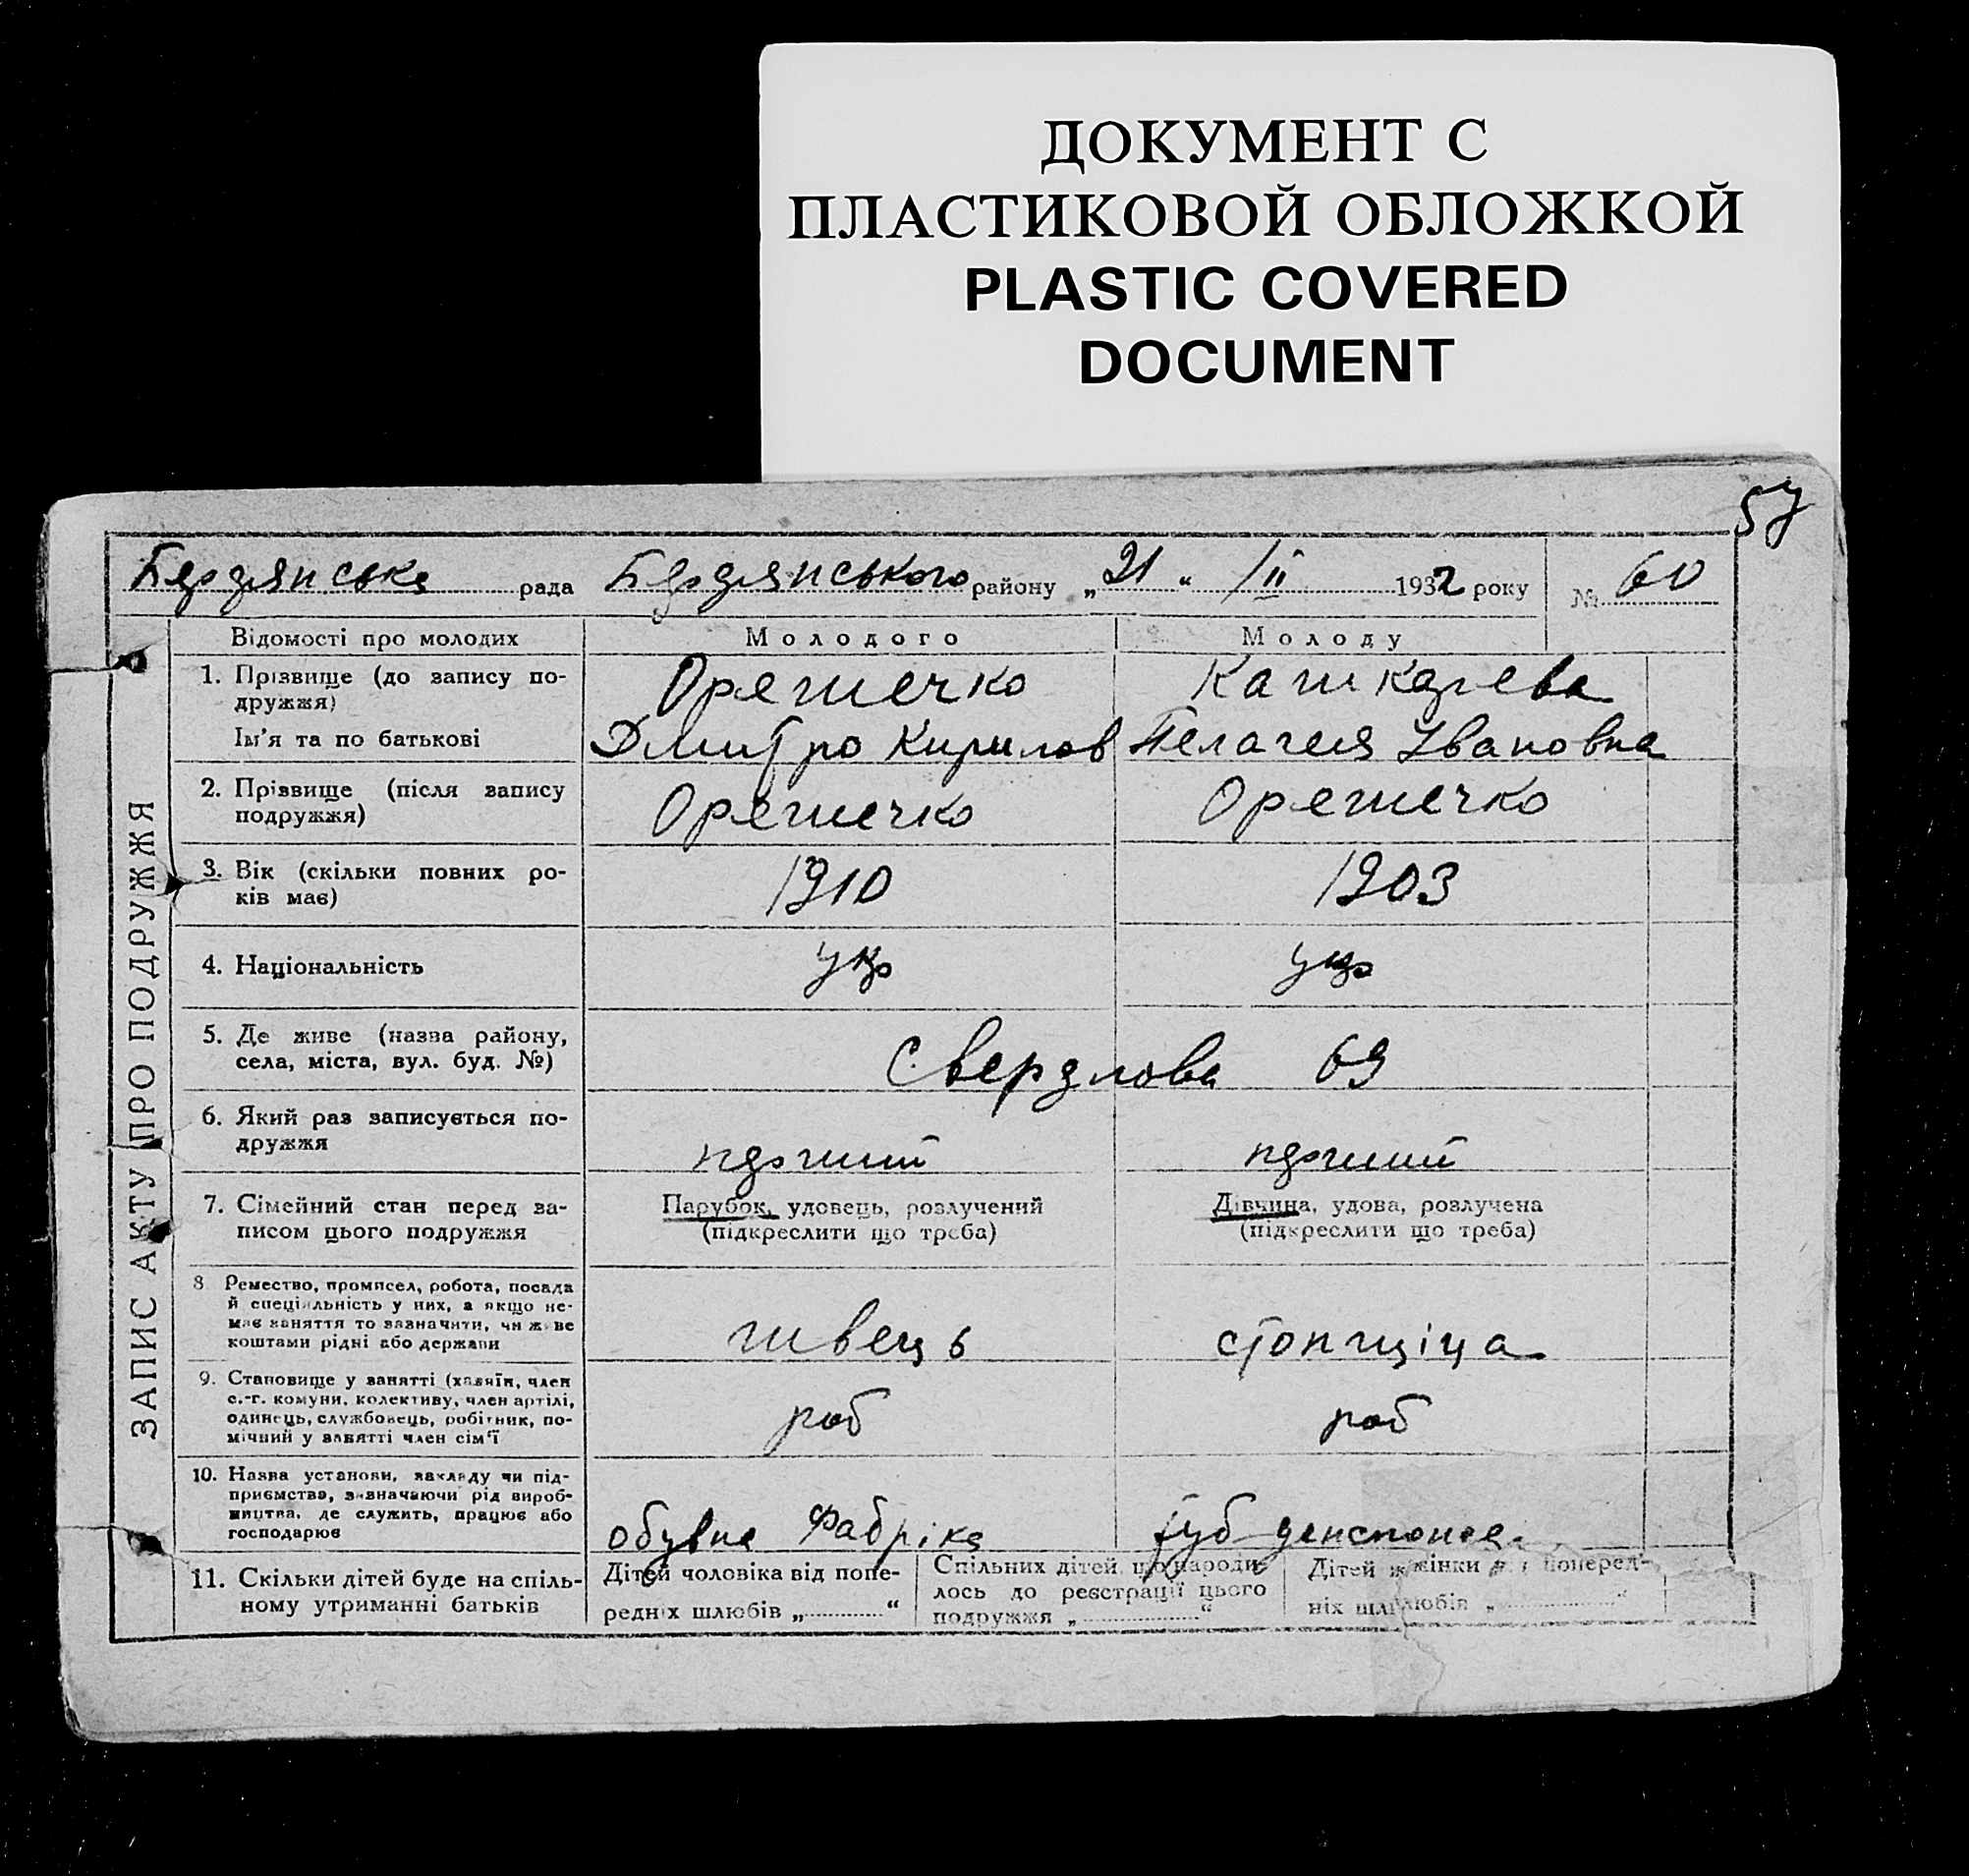 ДОКУМЕНТ С
ПЛАСТИКОВОЙ ОБЛОЖКОЙ
PLASTIC COVERED
DOCUMENT
57
Бердянська рада Бердянського району „21“ /II 1932 року № 60
ЗАПИС АКТУ ПРО ПОДРУЖЖЯ
Відомості про молодих Молодого Молоду
1. Прізвище (до запису по-
дружжя) Орешечко Кашкарева
Ім'я та по батькові Дмитро Кирилов Пелагея Ивановна
2. Прізвище (після запису
подружжя) Орешечко Орешечко
3. Вік (скільки повних ро-
ків має) 1910 1903
4. Національність укр укр
5. Де живе (назва району,
села, міста, вул. буд. №) Свердлова 69
6. Який раз записується по-
дружжя перший перший
7. Сімейний стан перед за-
писом цього подружжя
Парубок, удовець, розлучений
(підкреслити що треба)
Дівчина, удова, розлучена
(підкреслити що треба)
8 Ремество, промисел, робота, посада
й спеціяльність у них, а якщо не-
має заняття то зазначити, чи живе
коштами рідні або держави
швець
9. Становище у занятті (хазяїн, член
с.-г. комуни, колективу, член артілі,
одинець, службовець, робітник, по-
мічний у занятті член сім'ї
роб роб
10. Назва установи, закладу чи під-
приємства, зазначаючи рід вироб-
ництва, де служить, працює або
господарює
обувна Фабріка
11. Скільки дітей буде на спіль-
ному утриманні батьків
Дітей чоловіка від попе-
редніх шлюбів „ “
Спільних дітей, що народи-
лось до реєстрації цього
подружжя „ “
Дітей жінки поперед-
ніх шлюбів „ “